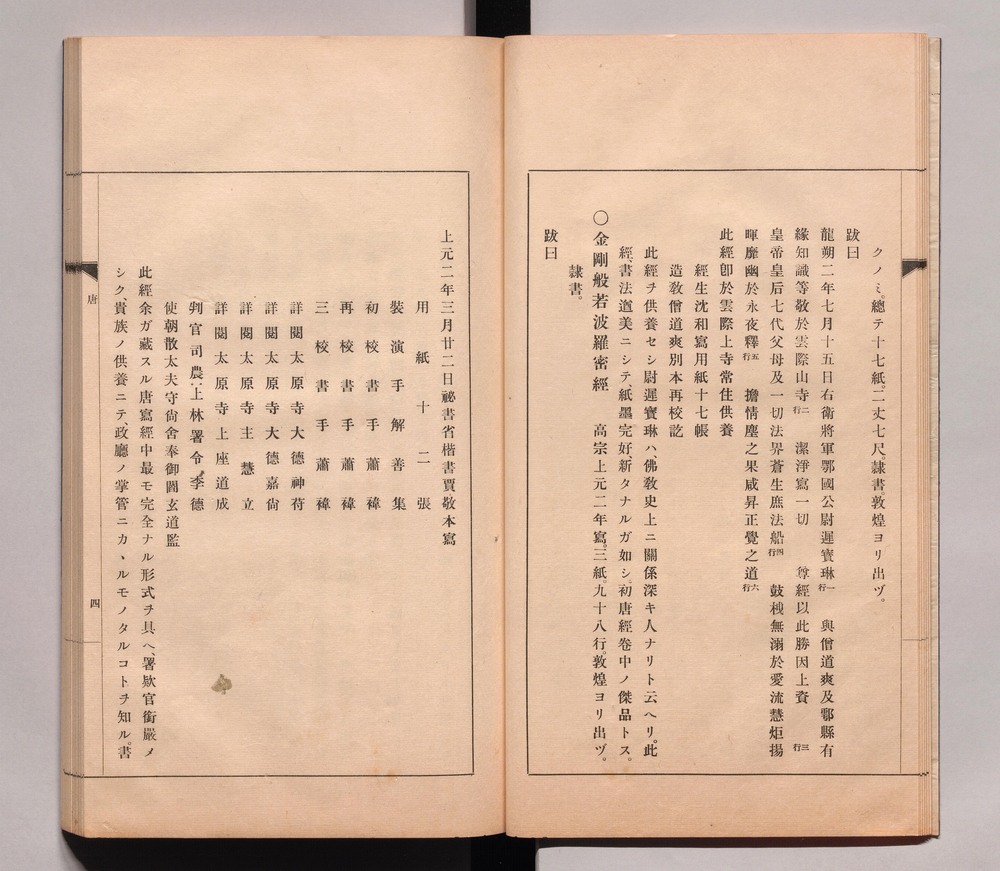 クノミ。總テ十七紙。二丈七尺。隷書。敦煌ヨリ出ヅ。
跋曰
龍朔二年七月十五日右衛將軍鄂國公尉遲寶琳一行 與僧道爽及鄠縣有
緣知識等敬於雲際山寺二行 潔淨寫一切 尊經以此勝因上資 三行
皇帝皇后七代父母及一切法界蒼生庶法船四行 鼓栧無溺於愛流慧炬揚
暉靡幽於永夜釋五行 擔情塵之果咸昇正覺之道六行
此經卽於雲際上寺常住供養
經生沈和寫用紙十七帳
造教僧道爽別本再校訖
此經ヲ供養セシ尉遲寶琳ハ、佛敎史上ニ關係深キ人ナリト云ヘリ。此
經、書法遒美ニシテ、紙墨完好新タナルガ如シ。初唐經卷中ノ傑品トス。
○金剛般若波羅密經 高宗上元二年寫。三紙。九十八行。敦煌ヨリ出ヅ。
隷書。
跋曰
上元二年三月廿二日祕書省楷書賈敬本寫
用紙十二張
裝潢手解善集
初校書手蕭褘
再校書手蕭褘
三校書手蕭褘
詳閱太原寺大德神苻
詳閱太原寺大德嘉尙
詳閱太原寺主慧立
詳閱太原寺上座道成
判官司農上林署令李德
使朝散太夫守尙舍奉御閻玄道監
此經余ガ藏スル唐寫經中最モ完全ナル形式ヲ具ヘ、署欵官銜嚴メ
シク、貴族ノ供養ニテ、政廳ノ掌管ニカヽルモノタルコトヲ知ル。書
唐
四